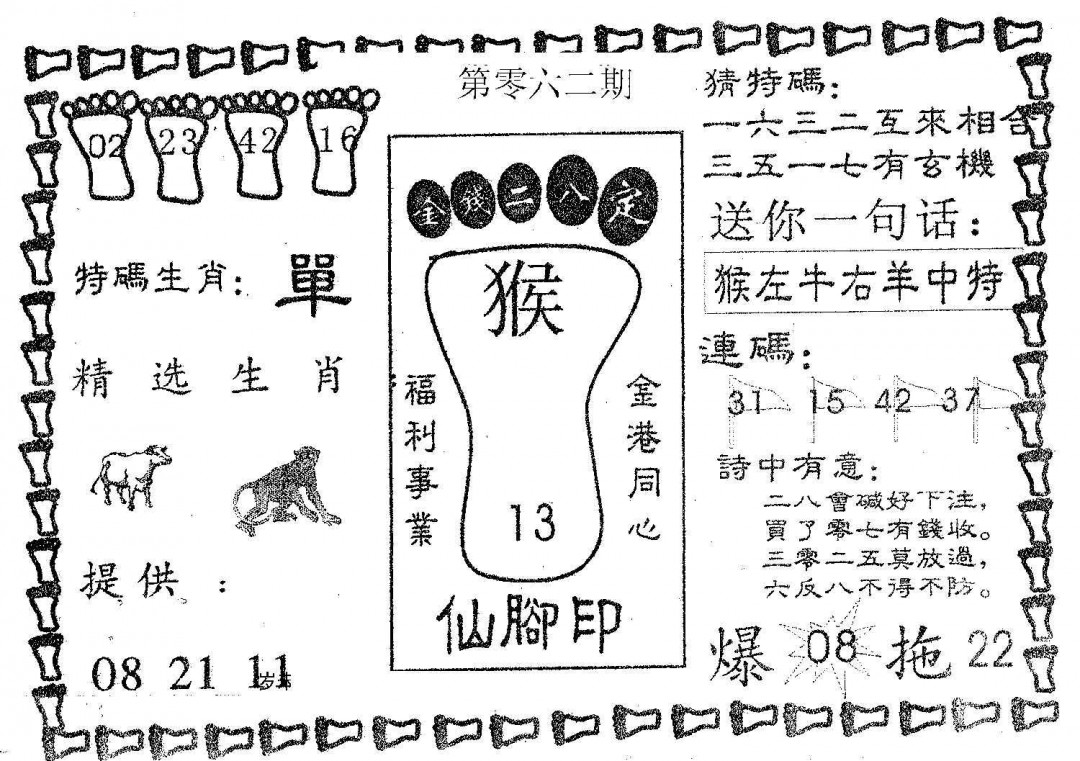 第零六二期
02 23 42 16
特碼生肖：單
精选生肖
提供：
08 21 11
金錢二八定
猴
福利事業
金港同心
13
仙腳印
猜特碼：
一六三二互來相合
三五一七有玄機
送你一句话：
猴左牛右羊中特
連碼：
31 15 42 37
詩中有意：
二八會碱好下注，
買了零七有錢收。
三零二五莫放過，
六反八不得不防。
爆 08 拖 22